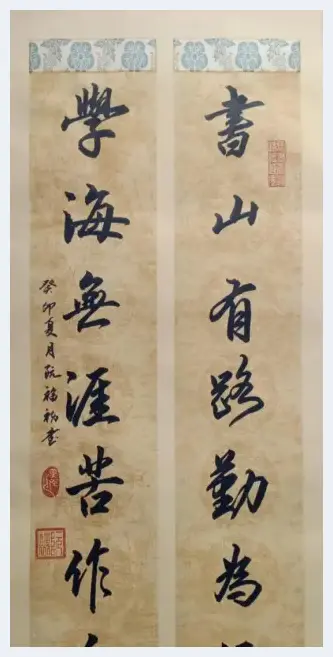 書山有路勤為
學海無涯苦作
癸卯夏月阮福書